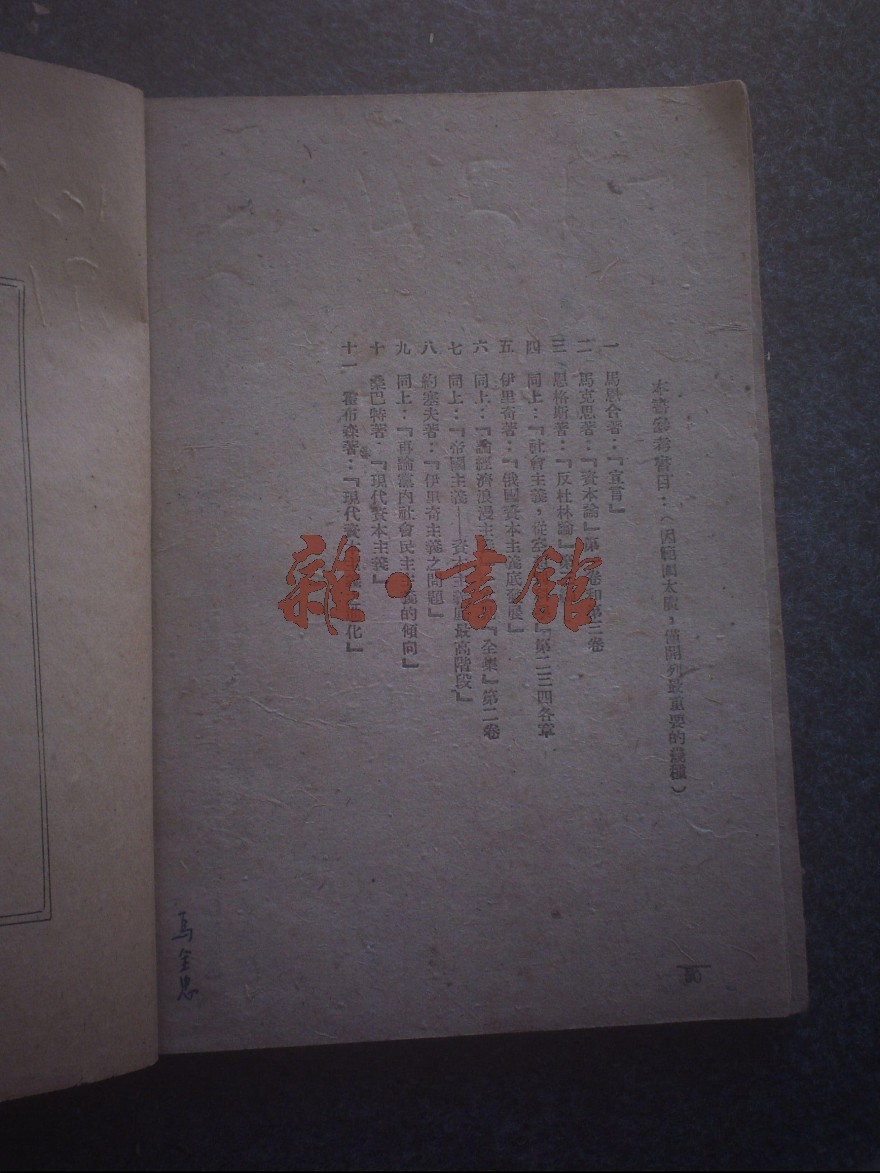 本書參考書目：（因範圍太廣，僅開列最重要的幾種）
一　馬恩合著：『宣言』
二　馬克思著：『資本論』第一卷和第三卷
三　恩格斯著：『反杜林論』
四　同上：『社會主義，從空 』第二三四各章
五　伊里奇著：『俄國資本主義底發展』
六　同上：『論經濟浪漫主 『全集』第二卷
七　同上：『帝國主義——資本主義底最高階段』
八　約塞夫著：『伊里奇主義之問題』
九　同上：『再論黨內社會民主主義的傾向』
十　桑巴特著：『現代資本主義』
十一　霍布森著：『現代資本 化』
雜·書館
馬全忠